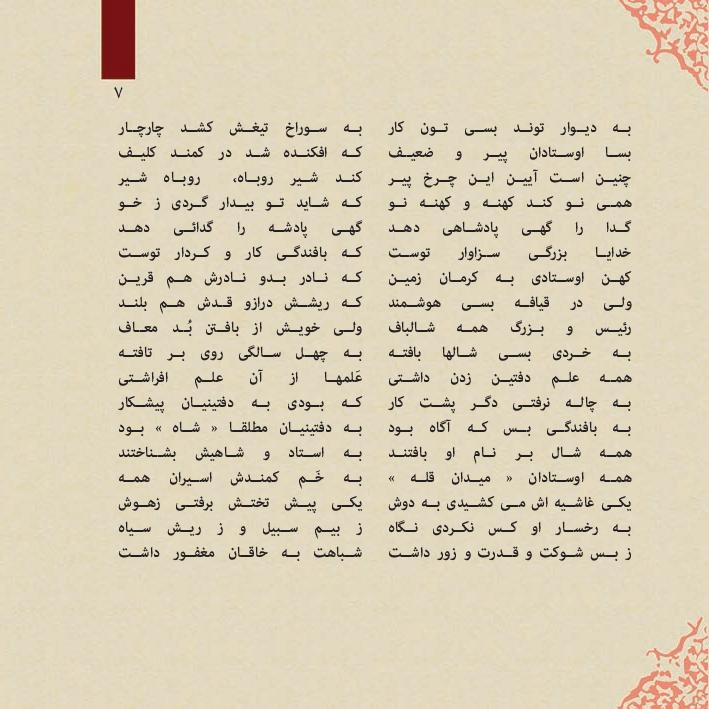 ۷
به دیوار توند بسی تون کار به سوراخ تیغش کشد چارچار
بسا اوستادان پیر و ضعیف که افکنده شد در کمند کلیف
چنین است آیین این چرخ پیر کند شیر روباه، روباه شیر
همی نو کند کهنه و کهنه نو که شاید تو بیدار گردی ز خو
گدا را گهی پادشاهی دهد گهی پادشه را گدائی دهد
خدایا بزرگی سزاوار توست که بافندگی کار و کردار توست
کهن اوستادی به کرمان زمین که نادر بدو نادرش هم قرین
ولی در قیافه بسی هوشمند که ریشش درازو قدش هم بلند
رئیس و بزرگ همه شالباف ولی خویش از بافتن بُد معاف
به خردی بسی شالها بافته به چهل سالگی روی بر تافته
همه علم دفتین زدن داشتی عَلمها از آن علم افراشتی
به چاله نرفتی دگر پشت کار که بودی به دفتینیان پیشکار
به بافندگی بس که آگاه بود به دفتینیان مطلقا « شاه » بود
همه شال بر نام او بافتند به استاد و شاهیش بشناختند
همه اوستادان « میدان قله » به خَم کمندش اسیران همه
یکی غاشیه اش می کشیدی به دوش یکی پیش تختش برفتی زهوش
به رخسار او کس نکردی نگاه ز بیم سبیل و ز ریش سیاه
ز بس شوکت و قدرت و زور داشت شباهت به خاقان مغفور داشت